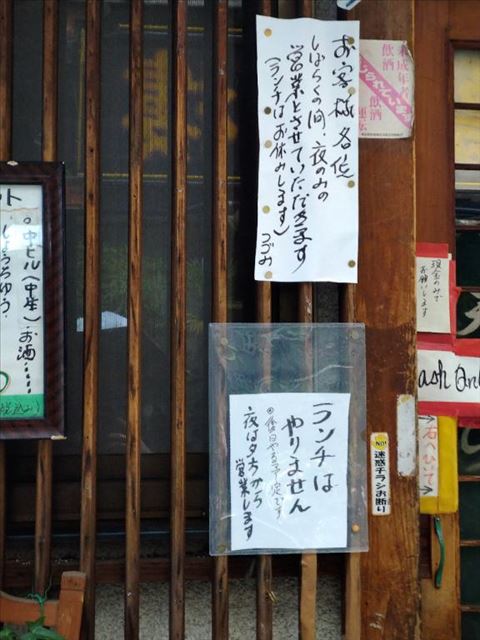 お客様各位
しばらくの間、夜のみの
営業とさせていただきます
(ランチはお休みします)
つづみ
ランチは
やりません
夜は夕方から
営業します
未成年者
飲酒
飲酒
運転
現金のみで
お願いします
ash Onl
右へひいて
NO!
迷惑チラシお断り
中ビル(中生)お酒
しょうちゅう